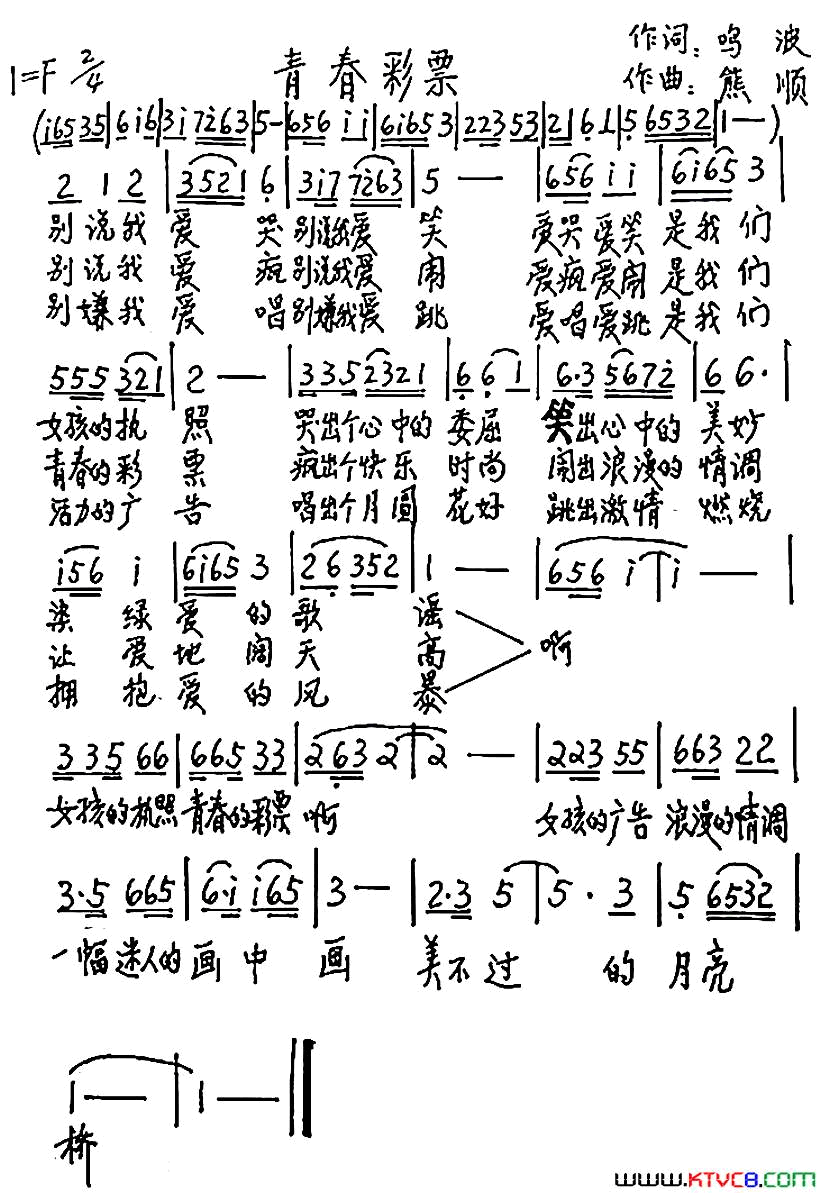 作词：鸣波
1=F 2/4 青春彩票
作曲：熊顺
(i6535|6i6|3i7i263|5-|656ii|6i653|22353|2161|56532|1—)
2 1 2|35216|3i77i263|5 —|656ii|6i653|
别说我爱 哭别说我爱 笑 爱哭爱笑是我们
别说我爱 疯别说我爱 闹 爱疯爱闹是我们
别嫌我爱 唱别嫌我爱 跳 爱唱爱跳是我们
555321|2 —|3352321|6 6 1|6·3567i|6 6·|
女孩的执 照 哭出个心中的委屈 笑出心中的美妙
青春的彩 票 疯出个快乐 时尚 闹出浪漫的情调
活力的广 告 唱出个月圆 花好 跳出激情 燃烧
i56 i|6i65 3|26352|1 —|656 i|i —|
染 绿爱的歌 谣
让 爱地阔天 高 啊
拥 抱爱的风 暴
335 66|665 33|263 2|2 —|223 55|663 22|
女孩的执照青春的彩票啊 女孩的广告浪漫的情调
3·5 665|6·i i65|3 —|2·3 5|5· 3|5 6532|
一幅迷人的画中 画 美不过 的月亮
1 —|1 —‖
桥
www.KTVC8.COM